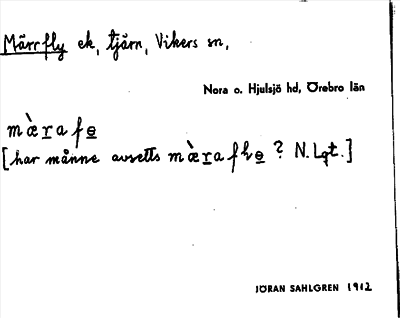 Märrfly ek, tjärn, Vikers sn,
Nora o. Hjulsjö hd, Örebro län
mæ̀rafɵ
[har månne avsetts mæ̀raflɵ ? N. Lgt.]
JÖRAN SAHLGREN 1912